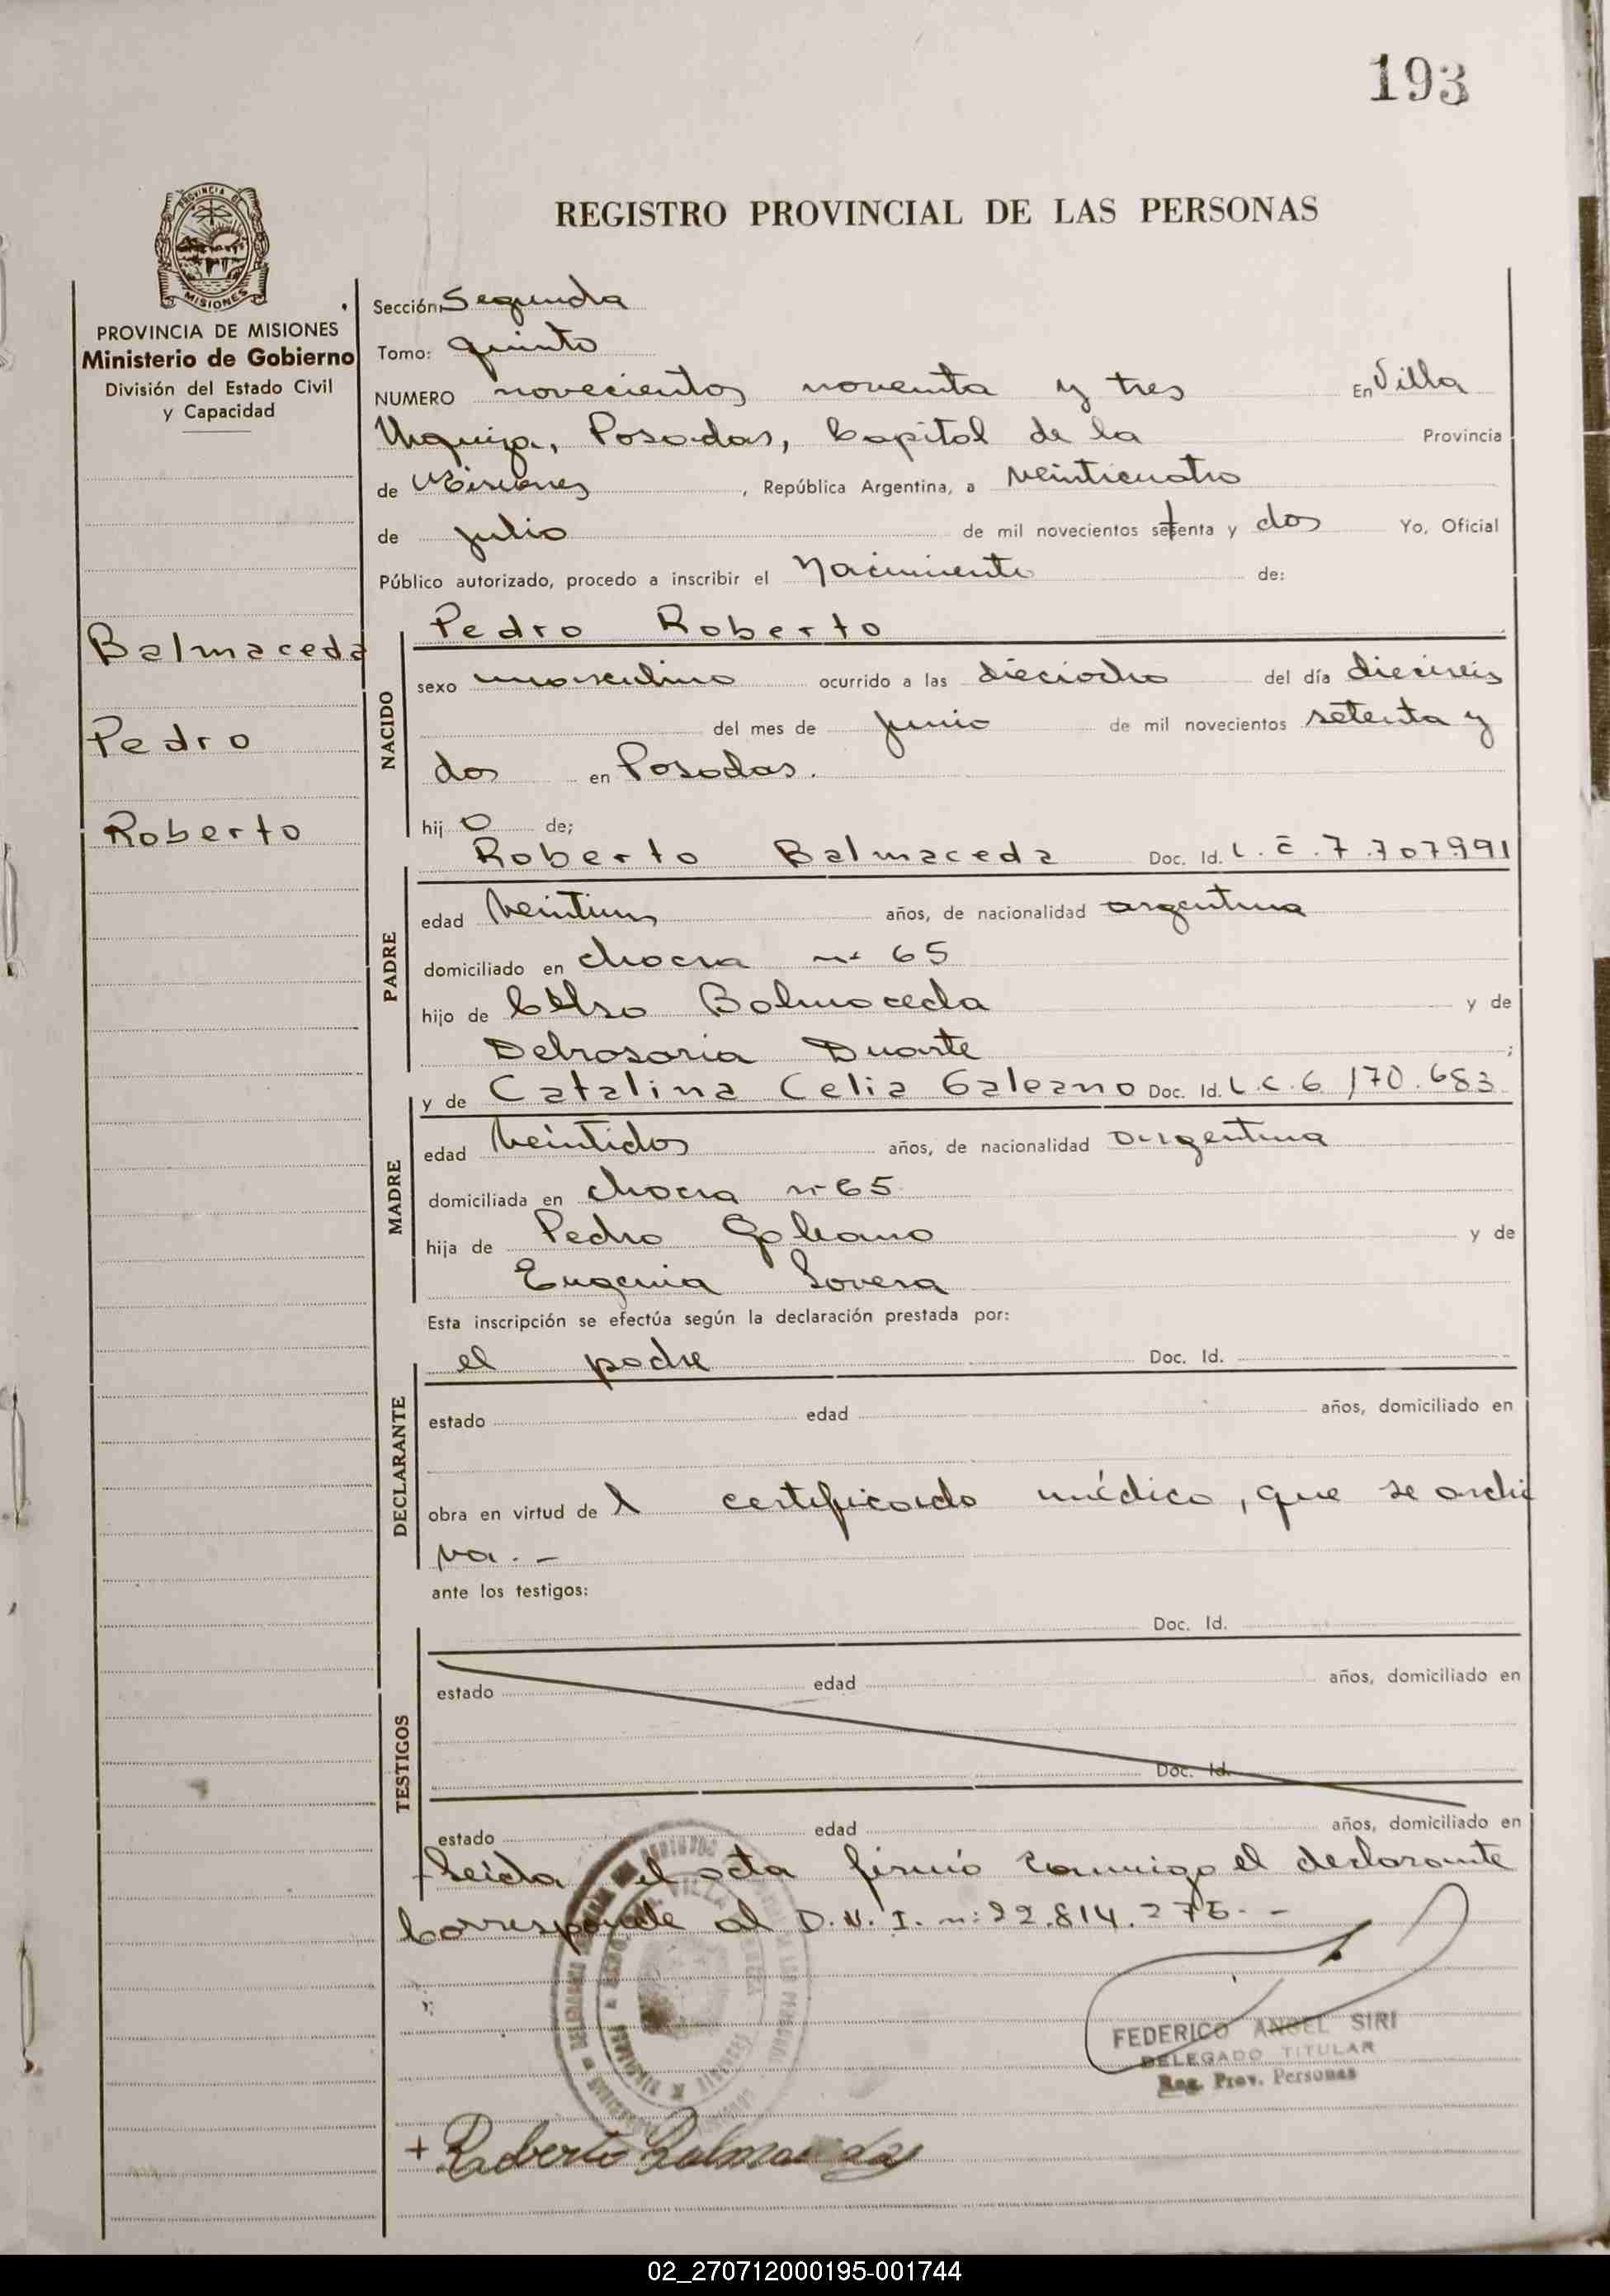 193
PROVINCIA DE
MISIONES
REGISTRO PROVINCIAL DE LAS PERSONAS
PROVINCIA DE MISIONES
Ministerio de Gobierno
División del Estado Civil
y Capacidad
Balmaceda
Pedro
Roberto
Sección: Segunda
Tomo: quinto
NUMERO novecientos noventa y tres En Villa
Urquiza, Posadas, Capital de la Provincia
de Misiones, República Argentina, a veinticuatro
de julio de mil novecientos setenta y dos Yo, Oficial
Público autorizado, procedo a inscribir el Nacimiento de:
NACIDO
Pedro Roberto
sexo masculino ocurrido a las dieciocho del día dieciseis
del mes de junio de mil novecientos setenta y
dos en Posadas.
hijo de;
PADRE
Roberto Balmaceda Doc. Id. L.E. 7.707.991
edad veintiun años, de nacionalidad argentina
domiciliado en chacra nº 65
hijo de Celso Balmaceda y de
Delrosaria Duarte ;
MADRE
y de Catalina Celia Galeano Doc. Id. L.C. 6.170.683
edad veintidos años, de nacionalidad argentina
domiciliada en chacra nº 65
hija de Pedro Galeano y de
Eugenia Lovera
Esta inscripción se efectúa según la declaración prestada por:
DECLARANTE
el padre Doc. Id.
estado edad años, domiciliado en
obra en virtud de l certificado médico, que se archi
va. -
ante los testigos:
TESTIGOS
Doc. Id.
estado edad años, domiciliado en
Doc. Id.
estado edad años, domiciliado en
Leída el acta firmó conmigo el declarante
Corresponde al D.N.I. nº: 22.814.275. -
FEDERICO ANGEL SIRI
DELEGADO TITULAR
Reg. Prov. Personas
+ Roberto Balmaceda
02_270712000195-001744